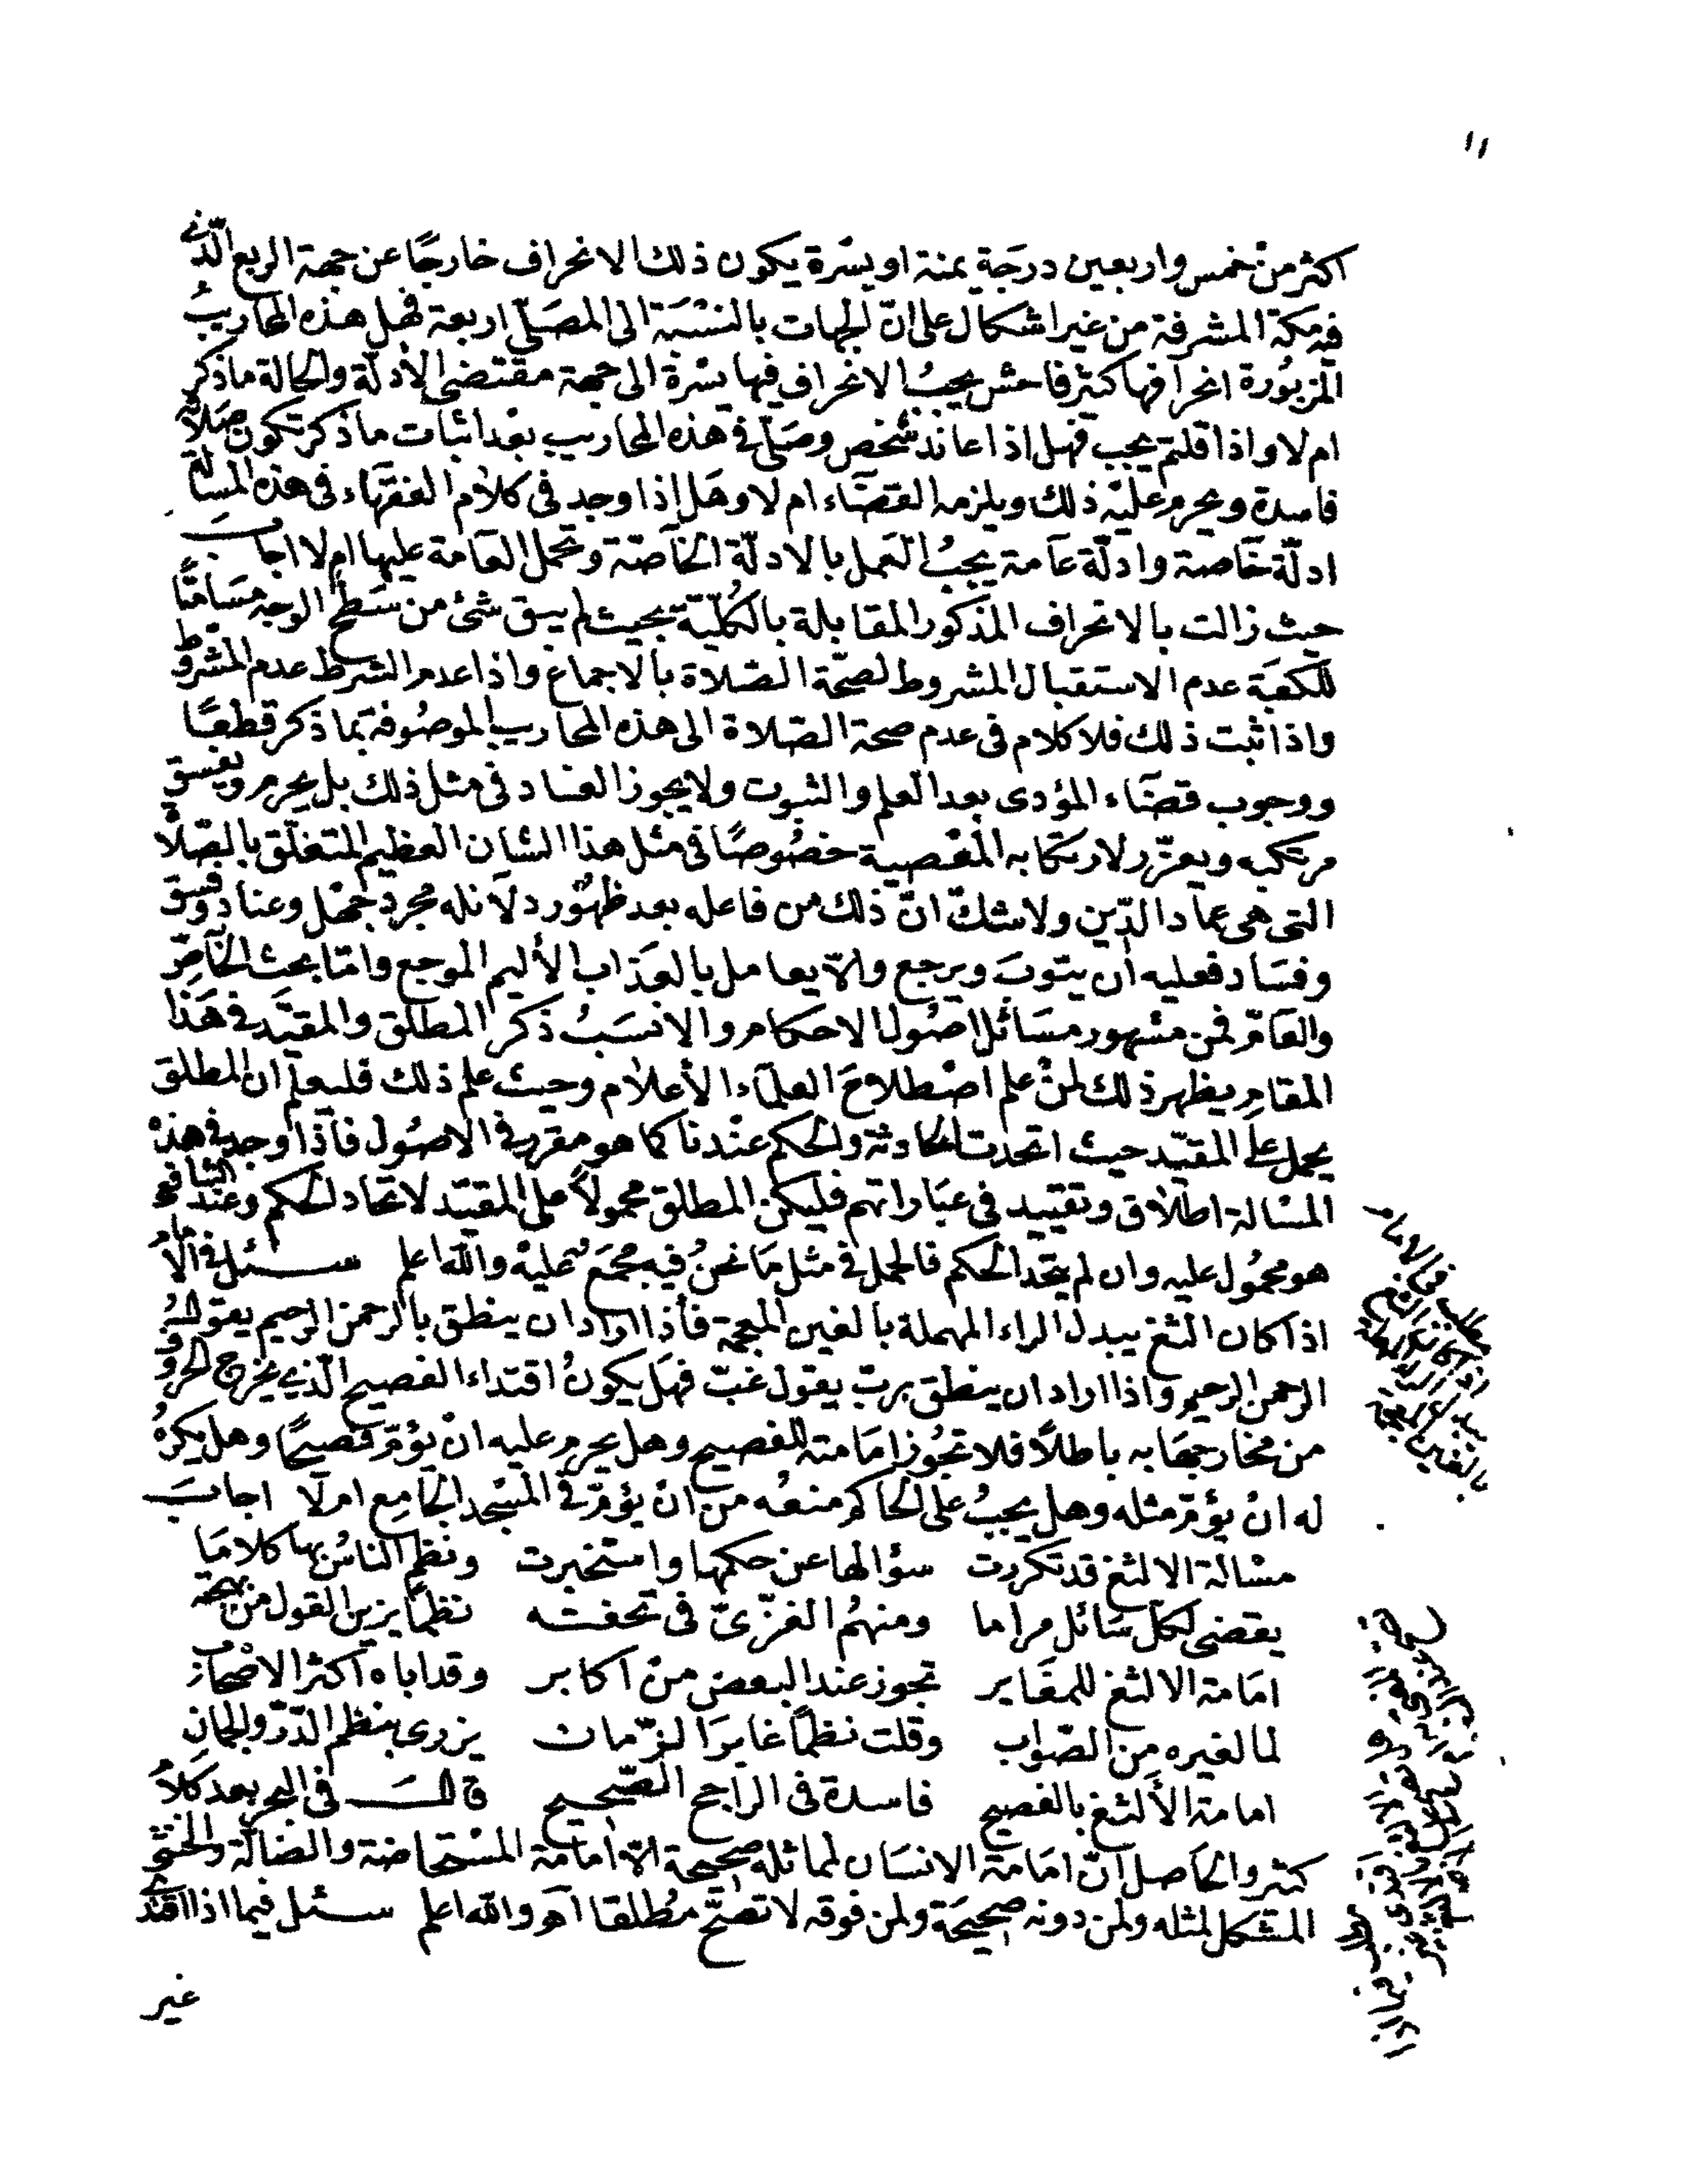 ١١
اكثر من خمس واربعين درجة يمنة او يسرة يكون ذلك الانحراف خارجًا عن جهة الربع الّذى
فيه مكة المشرفة من غير اشكال على انّ الجهات بالنسبة الى المصلّى اربعة فهل هذه المحاريب
المزبورة انحرافها كثير فاحش يجبُ الانحراف فيها يسرة الى جهة مقتضى الأدلّة والحالة ما ذكر
ام لا واذا قلتم يجب فهل اذا عاند شخص وصلّى فى هذه المحاريب بعد اثبات ما ذكر تكون صلاته
فاسدة ويحرم عليه ذلك ويلزمه القضاء ام لا وهل اذا وجد فى كلام الفقهاء فى هذه المسألة
ادلّة خاصة وادلّة عامة يجبُ العمل بالادلّة الخاصّة وتحمل العامة عليها ام لا اجاب
حيث زالت بالانحراف المذكور المقابلة بالكُلّيّة بحيث لم يبق شئ من سطح الوجه مسامتًا
للكعبة عدم الاستقبال المشروط لصحّة الصّلاة بالاجماع واذا عدم الشرط عدم المشروط
واذا ثبت ذلك فلا كلام فى عدم صحة الصّلاة الى هذه المحاريب الموصُوفة بما ذكر قطعًا
ووجوب قضاء المؤدى بعد العلم والثبوت ولا يجوز العناد فى مثل ذلك بل يحرم ويفسق
مرتكبه ويعزّر لارتكابه المعصية خصُوصًا فى مثل هذا الشان العظيم المتعلّق بالصّلاة
التى هى عماد الدّين ولا شكّ انّ ذلك من فاعله بعد ظهُور دلائله مجرد جهل وعناد وفسق
وفساد فعليه ان يتوبَ ويرجع والاّ يعامل بالعذاب الأليم الموجع وامّا بحث الخاصّ
والعامّ فمن مشهور مسائل اصُول الاحكام والانسبُ ذكر المطلق والمقيّد فى هذا
المقام يظهر ذلك لمنْ علم اصْطلاحَ العلماء الأعلام وحيث علم ذلك فليعلم ان المطلق
يحمل على المقيّد حيث اتحدت الحادثة والحكم عنْدنا كما هو مقرر فى الاصُول فاذا وجد فى هذه
المسالة اطلاق وتقييد فى عباراتهم فليكن المطلق محمولاً على المقيّد لاتحاد الحكم وعند الشافعى
هو محمُول عليه وان لم يتحد الحكم فالحمل فى مثل ما نحنُ فيه مجمَع عليه والله اعلم سئل فى الامام
اذا كان الثغ يبدل الراء المهملة بالغين المعجمة فأذا اراد ان ينطق بالرحمن الرحيم يقول
الرحمن الرحيم واذا اراد ان ينطق بربّ يقول غبّ فهل يكونُ اقتداء الفصيح الّذى يخرج الحروف
من مخارجها به باطلاً فلا تجُوز امامته للفصيح وهل يحرم عليه انْ يؤمّ فصيحًا وهل يكرهُ
له انْ يؤمّ مثله وهل يجبُ على الحاكم منعه من انْ يؤمّ فى المسجد الجامع ام لا اجابَ
مسْالة الالثغ قد تكررت سؤالها عن حكمها واستخبرت ونظم الناسُ بها كلاما
يقضى لكل سائل مراما ومنهمُ الغزّىّ فى تحفته نظمًا يزين القول من بهجته
امامة الالثغ للمغاير تجوز عند البعض منْ اكابر وقد اباه اكثر الاصحاب
لما لغيره من الصّواب وقلت نظمًا غابرَ الزّمان يزرى بنظم الدّرّ والجمانِ
امامة الألثغ بالفصيح فاسدة فى الراجح الصّحيح قالَ فى البحر بعد كلامٍ
كثير والحاصل انّ امامة الانسان لمماثله صحيحة الاّ امامة المسْتحاضة والضالّة والخنثى
المشكل لمثله ولمن دونه صحيحة ولمن فوقه لا تصحّ مطلقا اه والله اعلم سئل فيما اذا اقتدى
غير
مطلب فى الامام
اذا كان الثغ
يبدل الراء المهملة
بالغين المعجمة